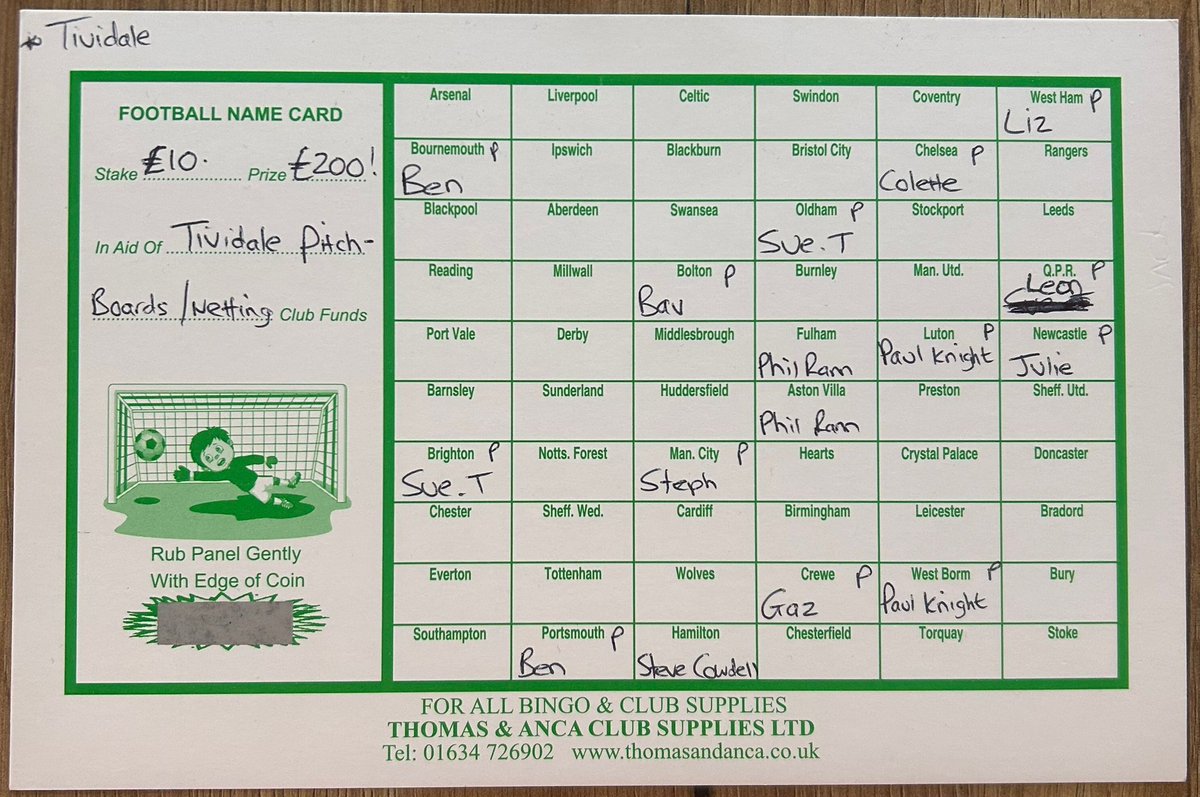 * Tividale
FOOTBALL NAME CARD
Stake £10. Prize £200!
In Aid Of Tividale Pitch-
Boards/Netting Club Funds
Rub Panel Gently
With Edge of Coin
Arsenal Liverpool Celtic Swindon Coventry West Ham P
Liz
Bournemouth P Ipswich Blackburn Bristol City Chelsea P Rangers
Ben Colette
Blackpool Aberdeen Swansea Oldham P Stockport Leeds
Sue.T
Reading Millwall Bolton P Burnley Man. Utd. Q.P.R. P
Bav Leon
Port Vale Derby Middlesbrough Fulham Luton P Newcastle P
Phil Ram Paul Knight Julie
Barnsley Sunderland Huddersfield Aston Villa Preston Sheff. Utd.
Phil Ram
Brighton P Notts. Forest Man. City P Hearts Crystal Palace Doncaster
Sue.T Steph
Chester Sheff. Wed. Cardiff Birmingham Leicester Bradord
Everton Tottenham Wolves Crewe P West Borm P Bury
Gaz Paul Knight
Southampton Portsmouth P Hamilton Chesterfield Torquay Stoke
Ben Steve Cowdell
FOR ALL BINGO & CLUB SUPPLIES
THOMAS & ANCA CLUB SUPPLIES LTD
Tel: 01634 726902 www.thomasandanca.co.uk